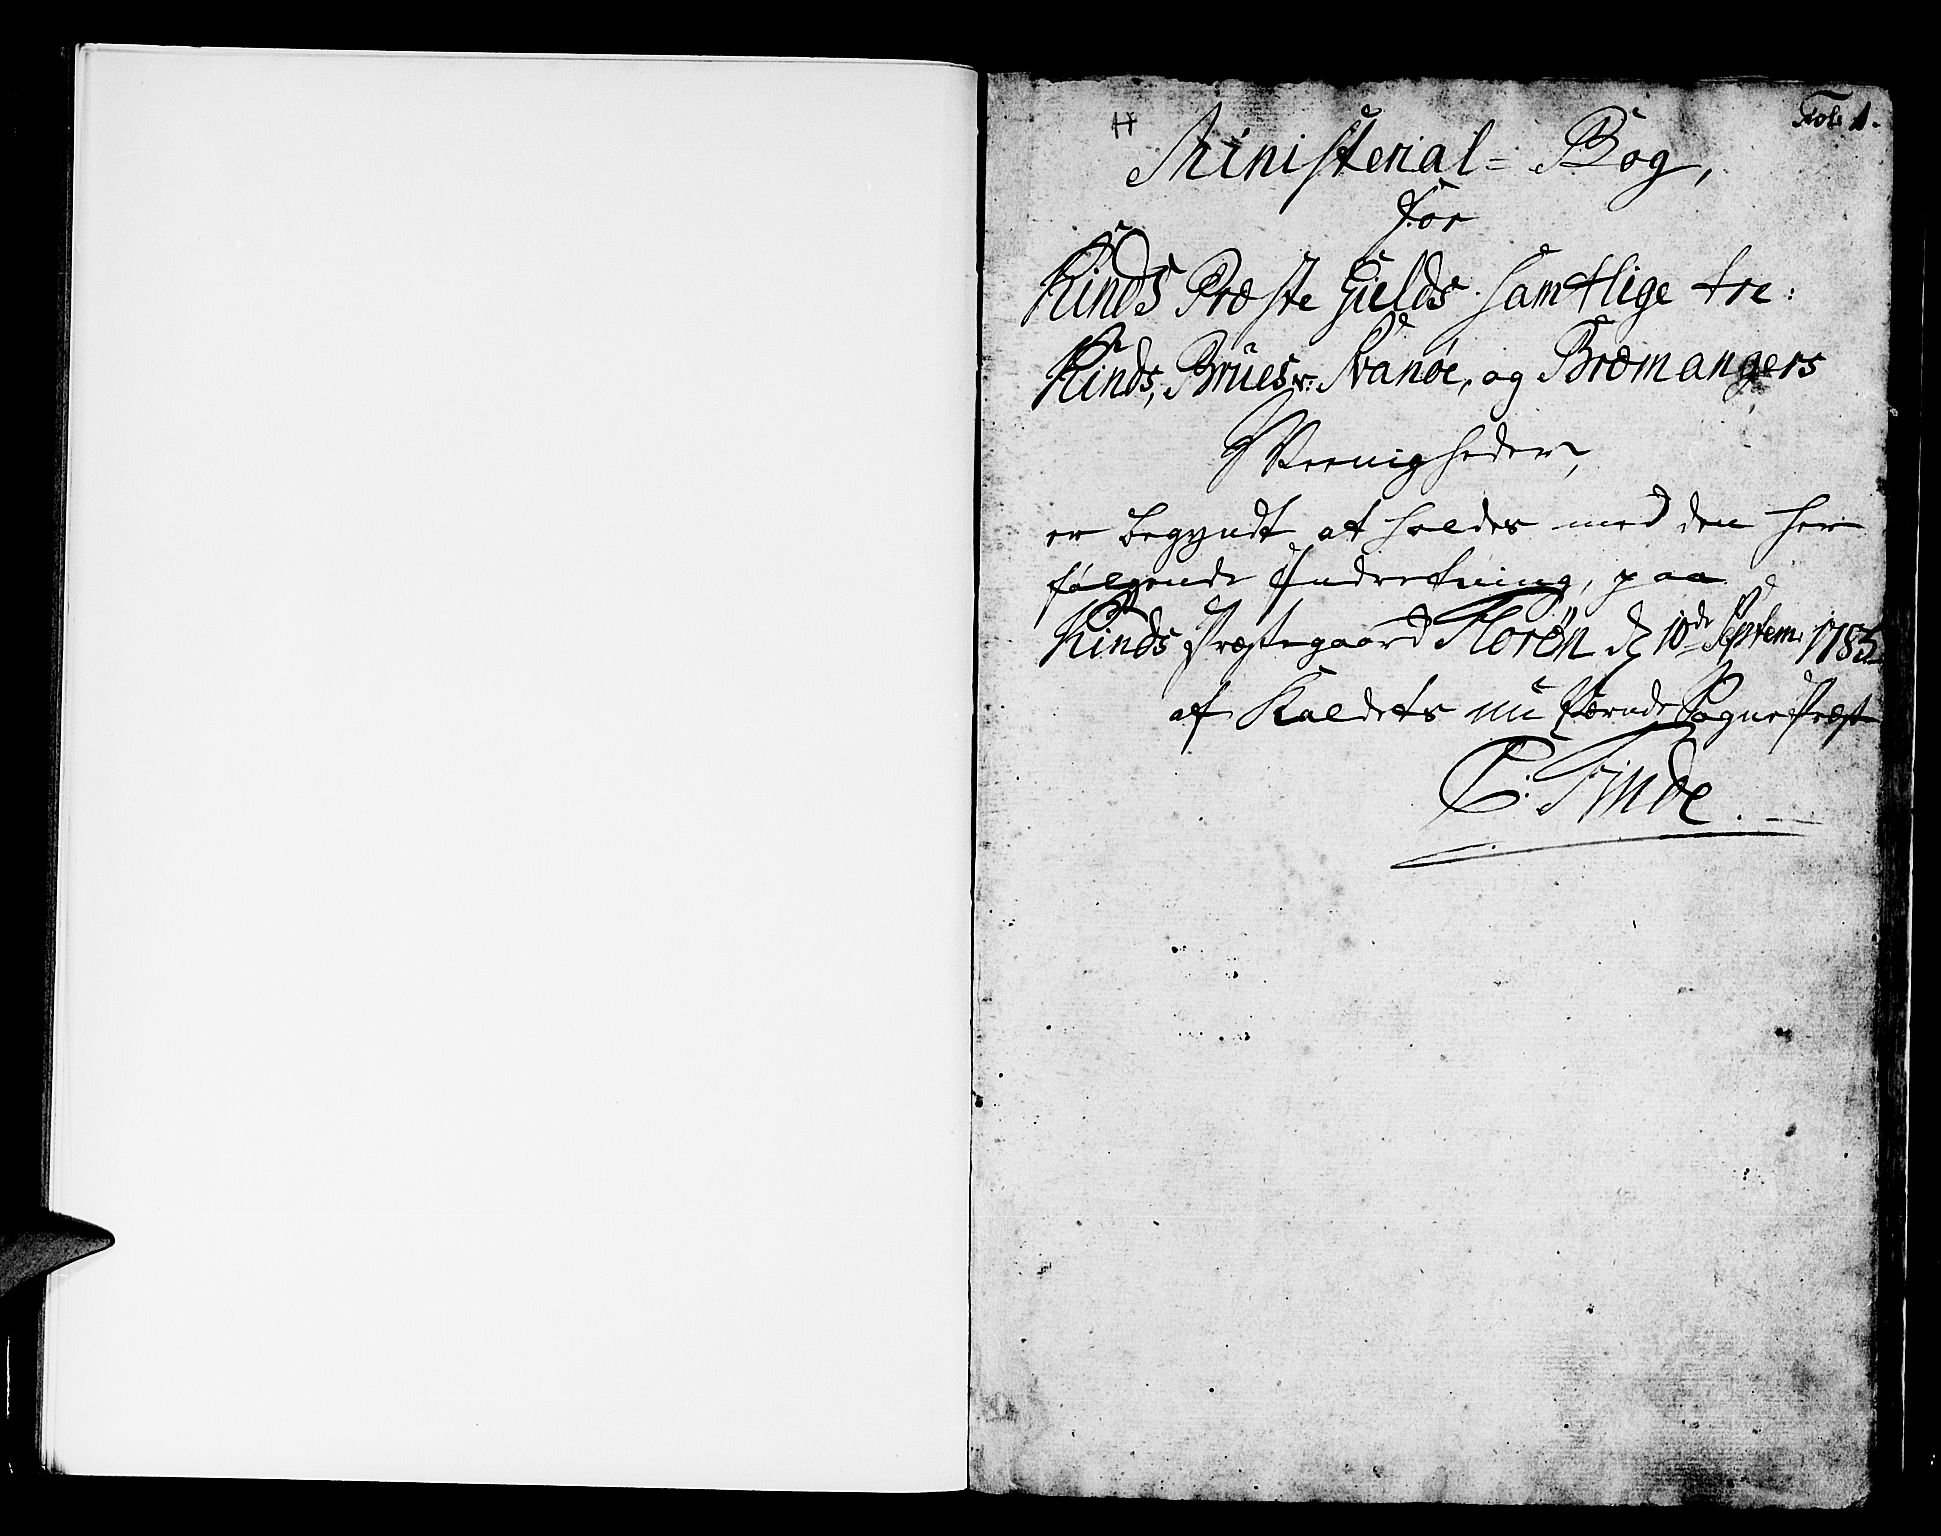 Fol: 1.
Ministerial=Bog,
for
Kinds Præste Gields samtlige tre:
Kinds, Brües, Svanøe, og Bræmangers
Meenigheder,
er begyndt at holdes med den her
følgende Indretning, paa
Kinds Præstegaard Florøn d 10de Septem: 1785
af Kaldets nu værende Sogne Præst
C: Finde.